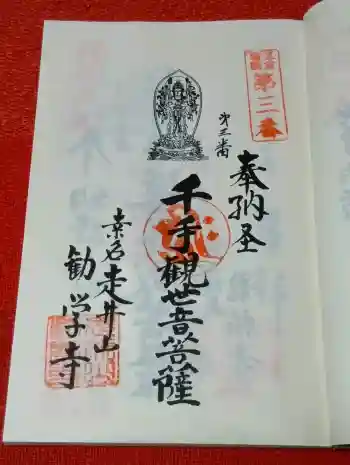 第三番
第三番
奉納圣
千手観世音菩薩
桑名走井山
勧学寺